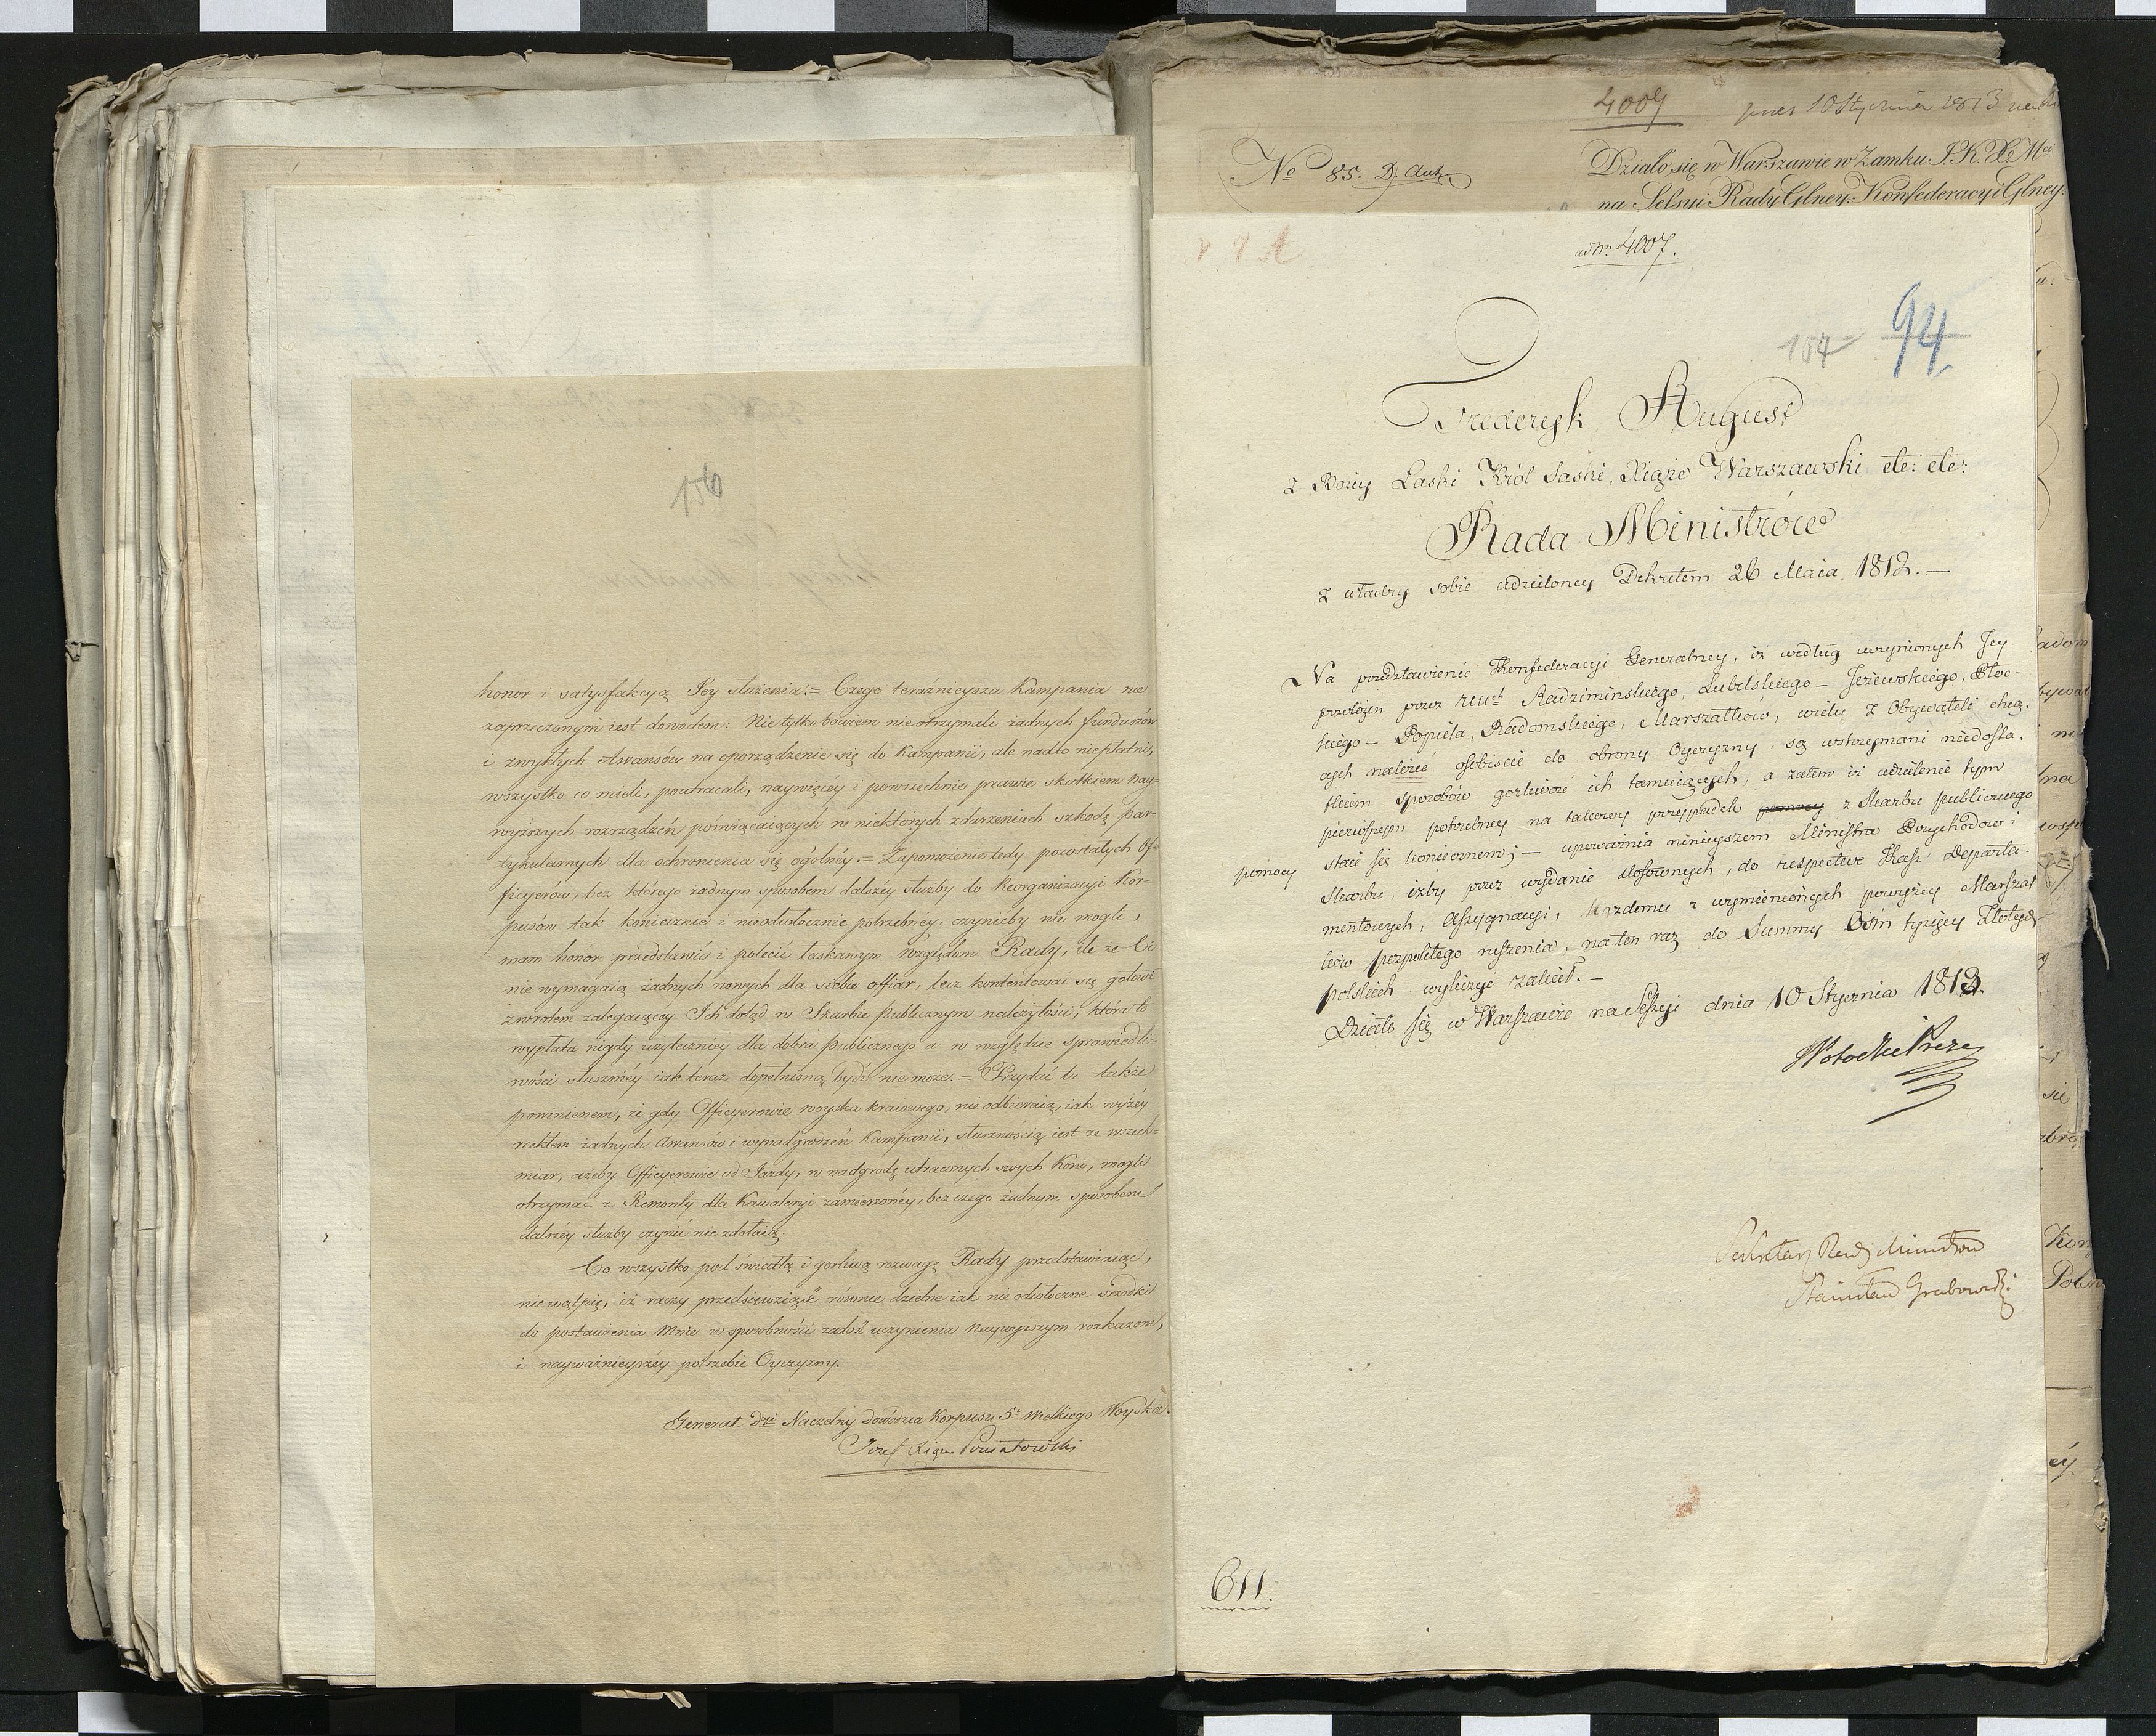 156
honor i satysfakcyą Jéy służenia. = Czego teraźnieysza Kampania nie
zaprzeczonym iest dowodem: Nie tylko bowiem nie otrzymali żadnych funduszów
i zwykłych Awansów na oporządzenie się do Kampanii, ale nadto niepłatni,
wszystko co mieli, poutracali, naywięcéy i powszechnie prawie skutkiem nay-
wyższych rozrządzeń poświęcaiących w niektórych zdarzeniach szkodę par-
tykularnych dla ochronienia się ogólnéy. = Zapomożenie tedy pozostałych Of-
ficyerów, bez którego żadnym sposobem dalszéy służby do Reorganizacyi Kor-
pusów tak koniecznie i nieodwłocznie potrzebnéy czynićby nie mogli,
mam honor przedstawić i polecić łaskawym względom Rady, ile że Ci
nie wymagaią żadnych nowych dla siebie offiar, lecz kontentować się gotowi
zwrotem zalegaiącey Ich dotąd w Skarbie publicznym należytości, któréto
wypłata nigdy użyteczniey dla dobra publicznego a w względzie sprawiedli-
wości słusznéy iak teraz dopełnioną bydź nie może. = Przydać tu także
powinienem, że gdy Officyerowie woyska kraiowego, nie odbieraią, iak wyżéy
rzekłem żadnych Awansów i wynadgrodzeń Kampanii, słusznością iest ze wszech-
miar, ażeby Officyerowie od Jazdy, w nadgrodę utraconych swych Koni, mogli
otrzymać z Remonty dla Kawaleryi zamierzonéy, bez czego żadnym sposobem
dalszéy służby czynić nie zdołaią.
Co wszystko pod światłą i gorliwą rozwagę Rady przedstawiaiąc,
nie wątpię, iż raczy przedsięwziąść równie dzielne iak nie odwłoczne środki
do postawienia mnie w sposobności zadość uczynienia naywyższym rozkazom,
i nayważnieyszéy potrzebie Oyczyzny.
Generał Dzi Naczelny Dowódzca Korpusu 5º Wielkiego Woyska.
Jozef Xiąże Poniatowski
4007 10 Stycznia 1813
No 85. D. Dział się w Warszawie w Zamku J. K. Xcey Mci
na Sessyi Rady Glney Konfederacyi Glney.
ad Nr 4007.
157 94
Frederyk August
z Bożey Łaski Król Saski, Xiąże Warszawski etc: etc:
Rada Ministrów
z władzy sobie udzieloney Dekretem 26 Maia 1812. —
Na przedstawienie Konfederacyi Generalney, iż według uczynionych Jey
przełożeń przez Radzimińskiego, Lubelskiego — Jeżewskiego, Płoc-
kiego — Popiela, Radomskiego, Marszałków, wielu z Obywateli chcą-
cych należeć osobiście do obrony Oyczyzny, są wstrzymani niedosta-
tkiem sposobów gorliwość ich tamuiących, a zatem iż udzielenie tym
pierwszym potrzebney na takowy przypadek pomocy z Skarbu publicznego
pomocy staie się koniecznem; — upoważnia ninieyszem Ministra Przychodów i
Skarbu, iżby przez wydanie stosownych, do respective Kass Departa-
mentowych, Assygnacyi, każdemu z wymienionych powyżey Marszał-
ków pospolitego ruszenia, na ten raz do Summy Ośm tysięcy Złotych
polskich wyliczyć zalecił. —
Działo się w Warszawie na Sessyi dnia 10 Stycznia 1813.
Potocki Prezes
Sekretarz Rady Ministrów
Stanisław Grabowski
611.